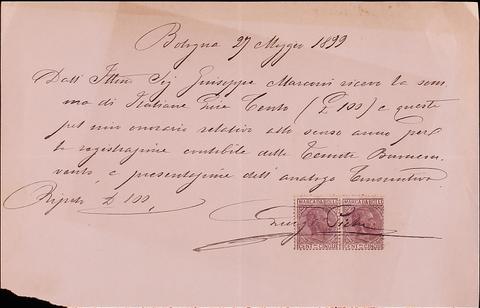 Bologna 27 Maggio 1899
Dall' Ill.mo Sig. Giuseppe Marconi ricevo la som
ma di Italiane Lire Cento (£ 100) e queste
pel mio onorario relativo allo scorso anno per
la registrazione contabile delle Tenute
e presentazione dell' analogo Consuntivo.
Ripeto £ 100,
Luigi
MARCA DA BOLLO MARCA DA BOLLO
CENT. CINQUE CENT. CINQUE